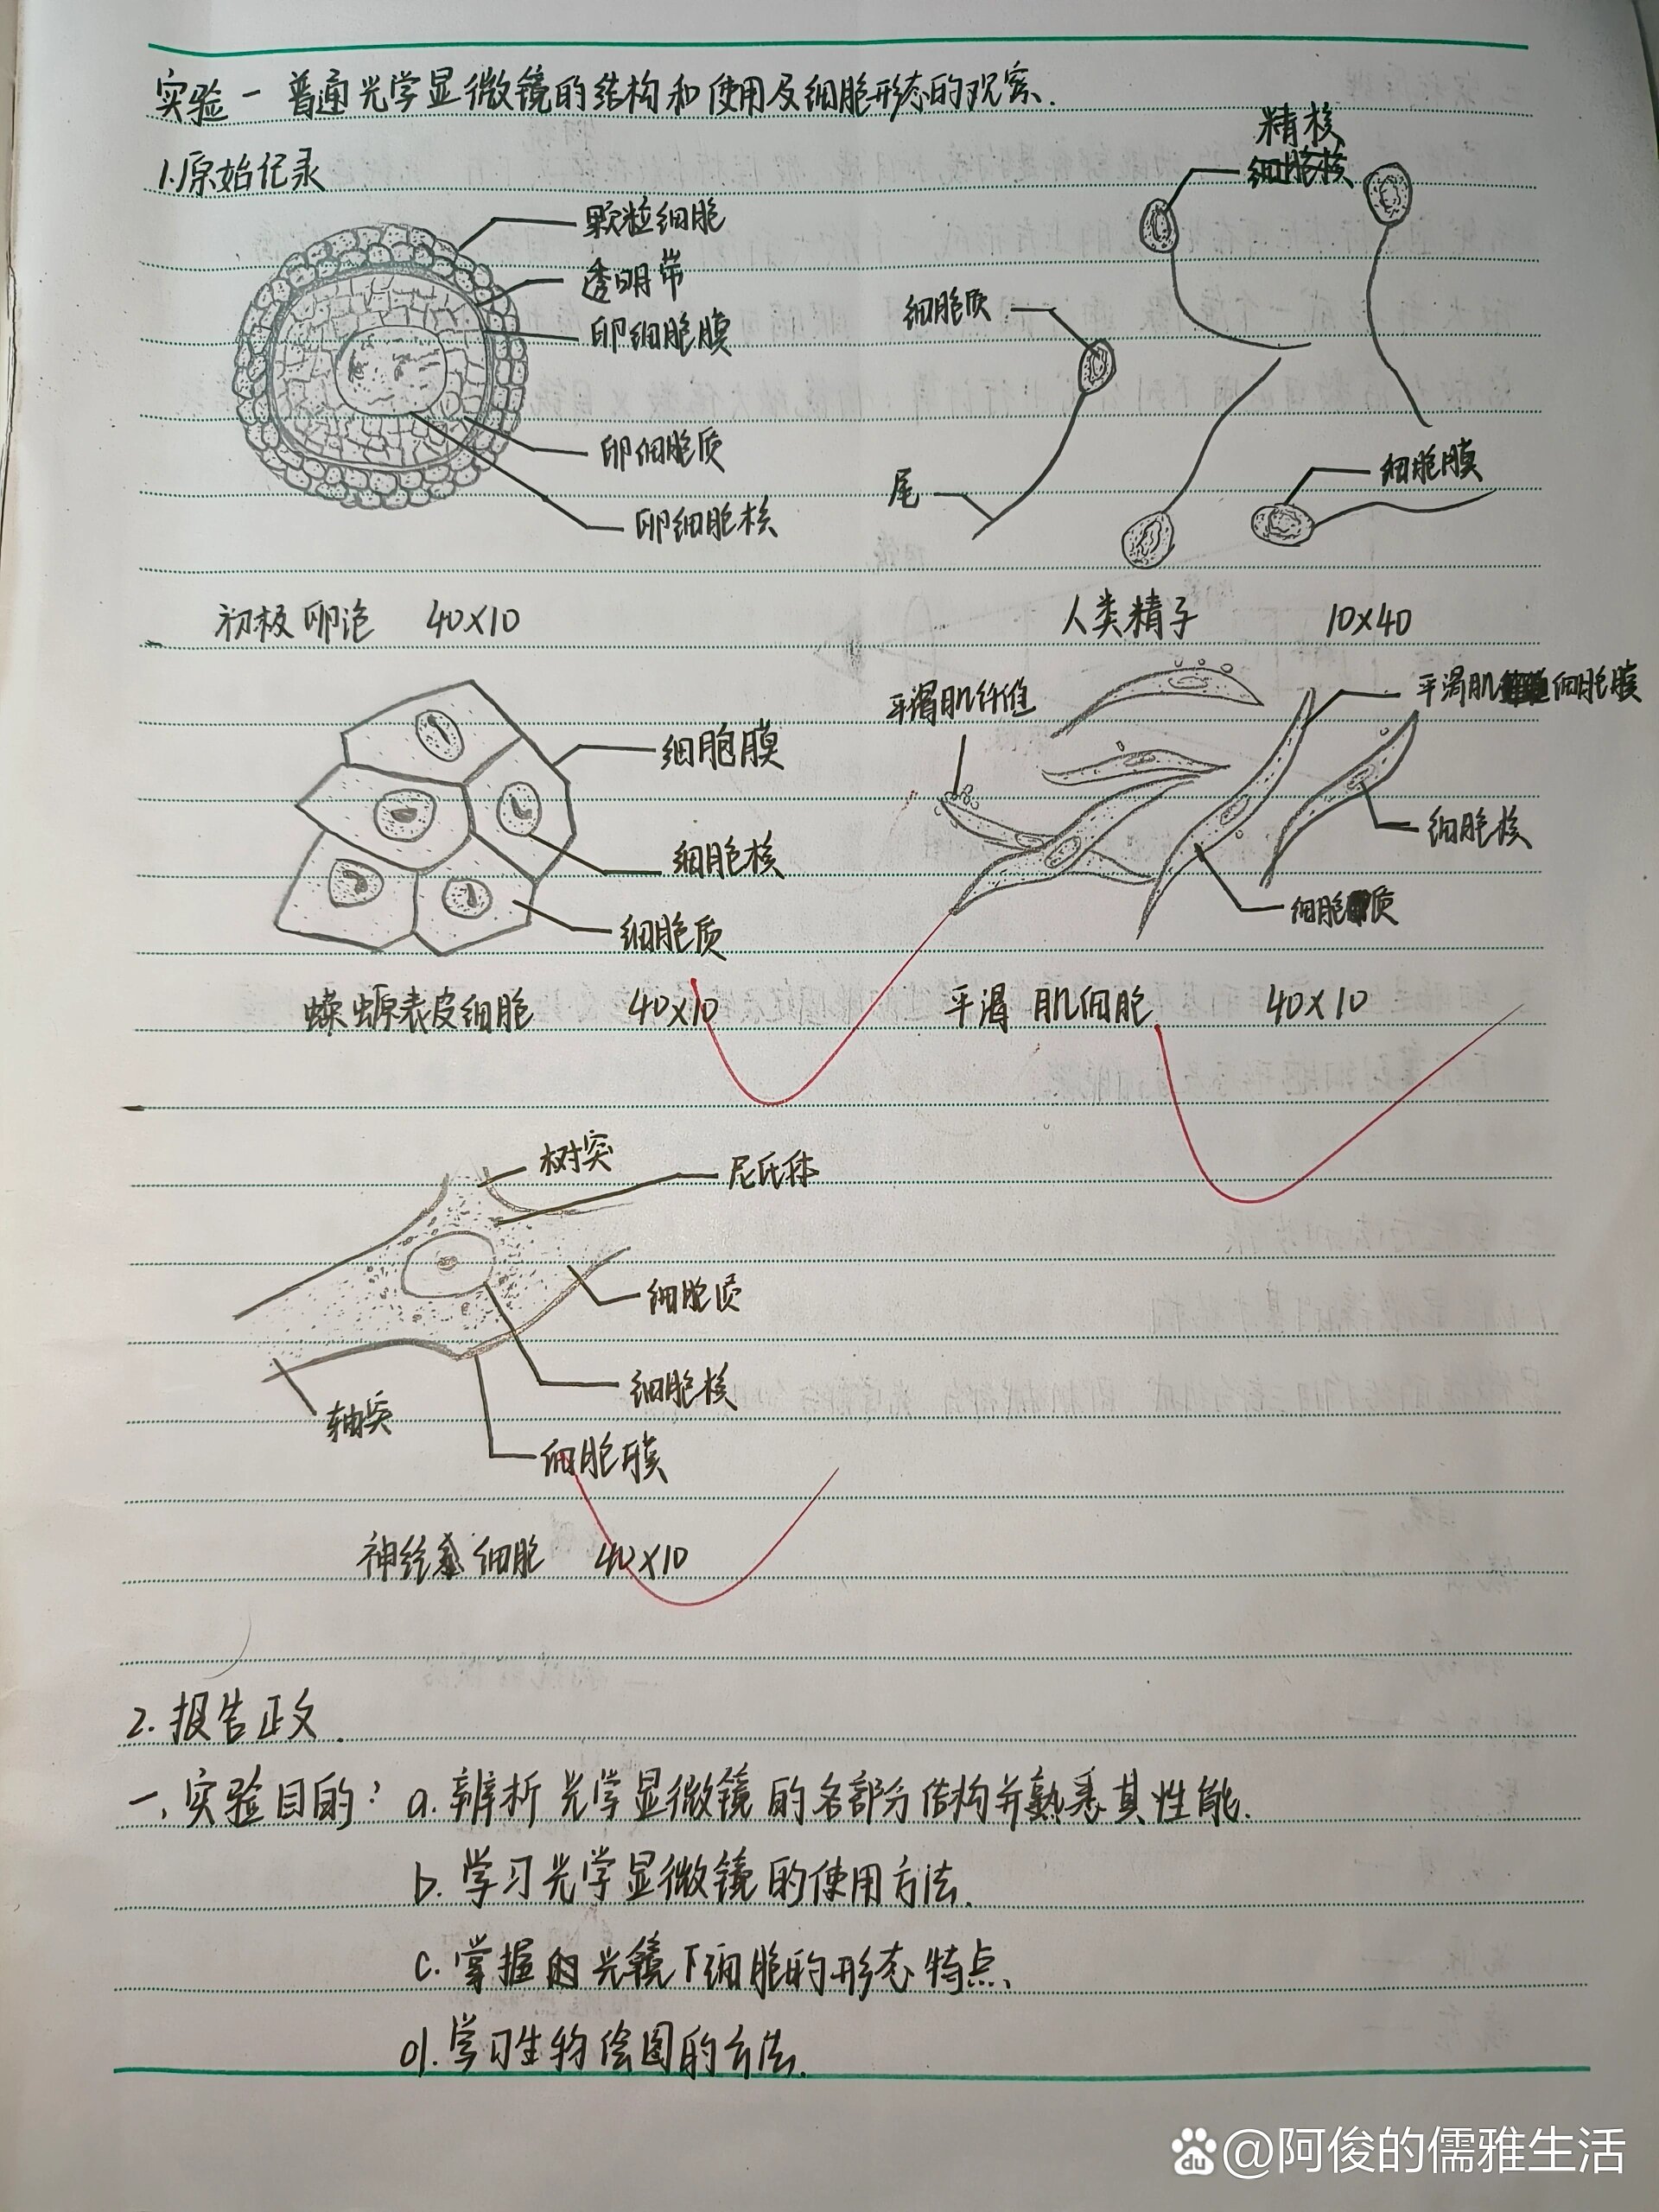 实验一 普通光学显微镜的结构和使用及细胞形态的观察.
1.原始记录
颗粒细胞
透明带
卵细胞膜
卵细胞质
卵细胞核
初极卵泡 40×10
精核
细胞质
尾
细胞膜
人类精子 10×40
细胞膜
细胞核
细胞质
蝾螈表皮细胞 40×10
平滑肌纤维
平滑肌细胞膜
细胞核
细胞质
平滑肌细胞 40×10
树突
尼氏体
细胞质
细胞核
细胞膜
轴突
神经细胞 40×10
2.报告正文.
一、实验目的: a.辨析光学显微镜的各部分结构并熟悉其性能.
b.学习光学显微镜的使用方法.
c.掌握光镜下细胞的形态特点、
d.学习生物绘图的方法.
du @阿俊的儒雅生活